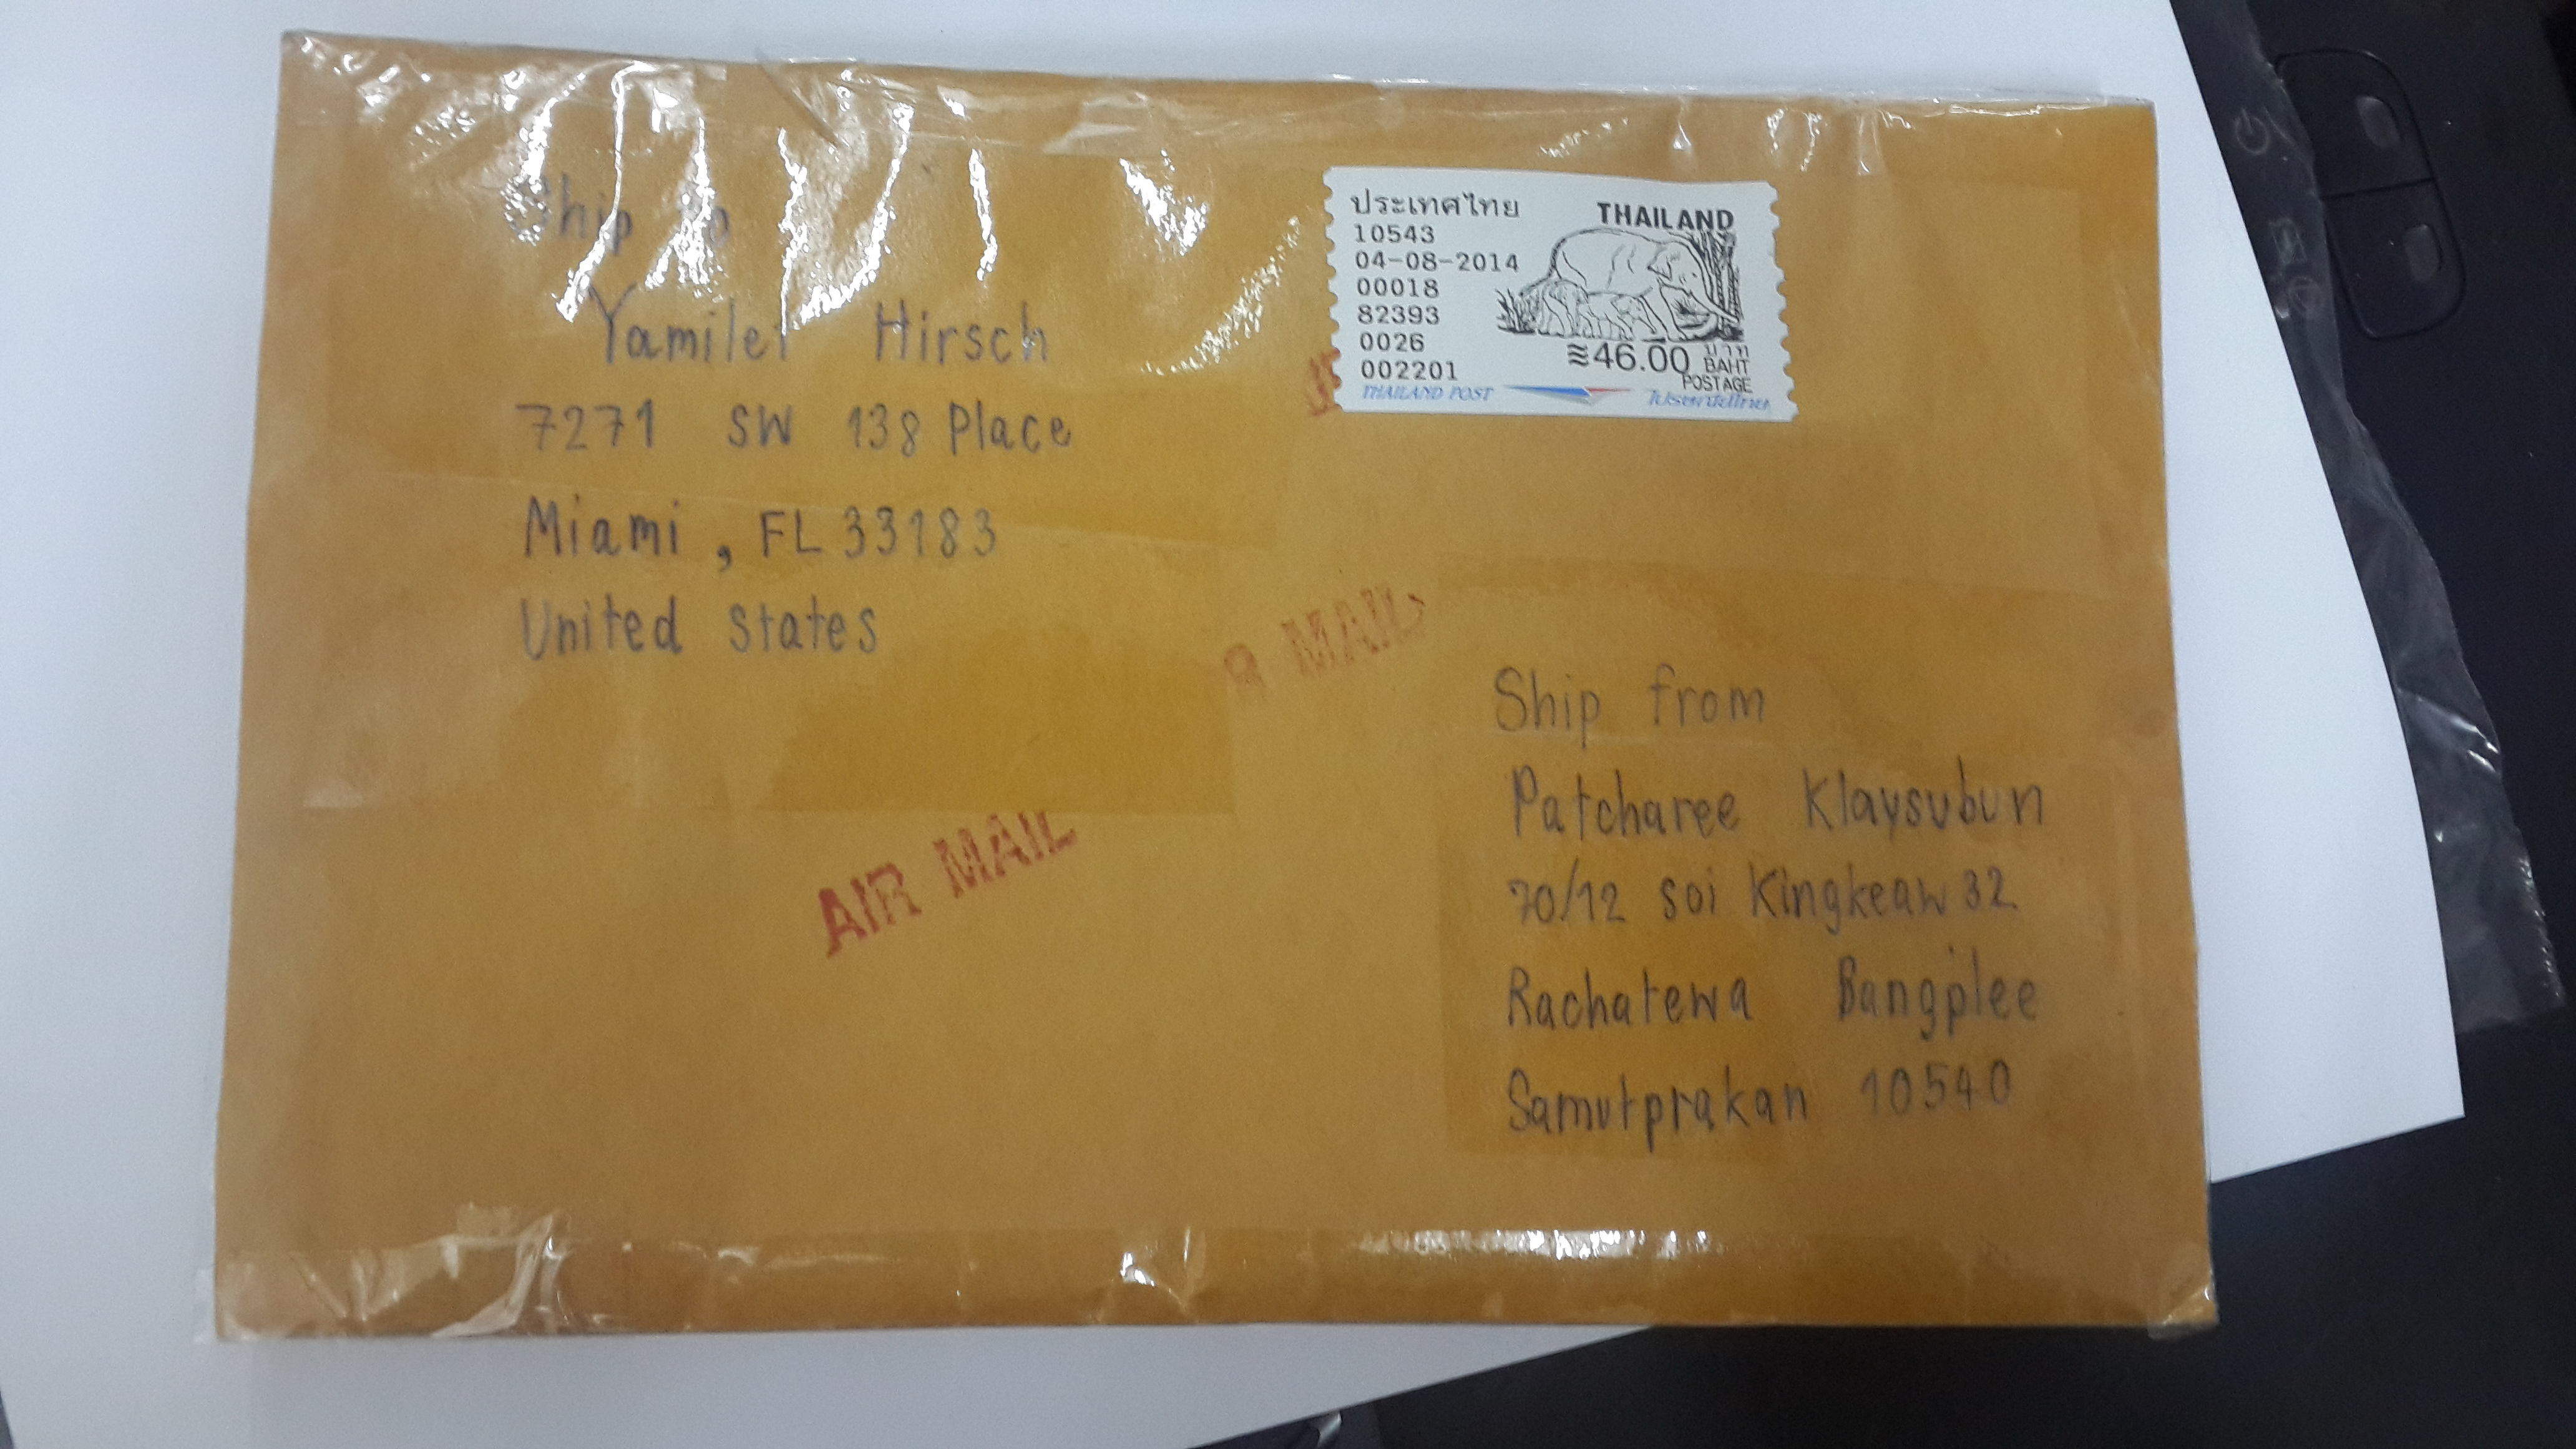 Ship to
Yamilet Hirsch
7271 SW 138 Place
Miami, FL 33183
United States
ประเทศไทย
THAILAND
10543
04-08-2014
00018
82393
0026
002201
≋46.00 บาท
BAHT
POSTAGE
THAILAND POST ไปรษณีย์ไทย
R MAIL
AIR MAIL
Ship from
Patcharee Klaysubun
70/12 Soi Kingkeaw 32
Rachatewa Bangplee
Samutprakan 10540